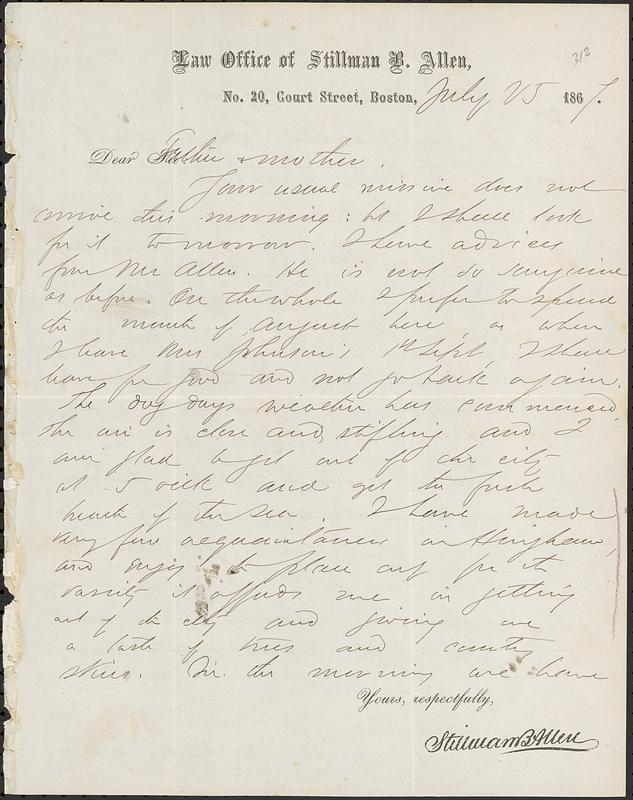 312
Law Office of Stillman B. Allen,
No. 20, Court Street, Boston, July 25 1867.
Dear Father & mother.
Your usual missive does not
arrive this morning: but I shall look
for it tomorrow. I have advices
from Mr Allen. He is not so sanguine
as before. On the whole I prefer to spend
the month of August here, as when
I leave Mrs Johnson's 1st Sept, I shall
leave for good and not go back again.
The dog days weather has commenced,
the air is close and stifling and I
am glad to get out of the city
at 5 oclk and get the fresh
breath of the sea. I have made
very few acquaintances in Hingham,
and enjoy the place only for the
variety it affords me in getting
out of the city and giving me
a taste of trees and country
skies. In the morning we have
Yours, respectfully,
Stillman B Allen